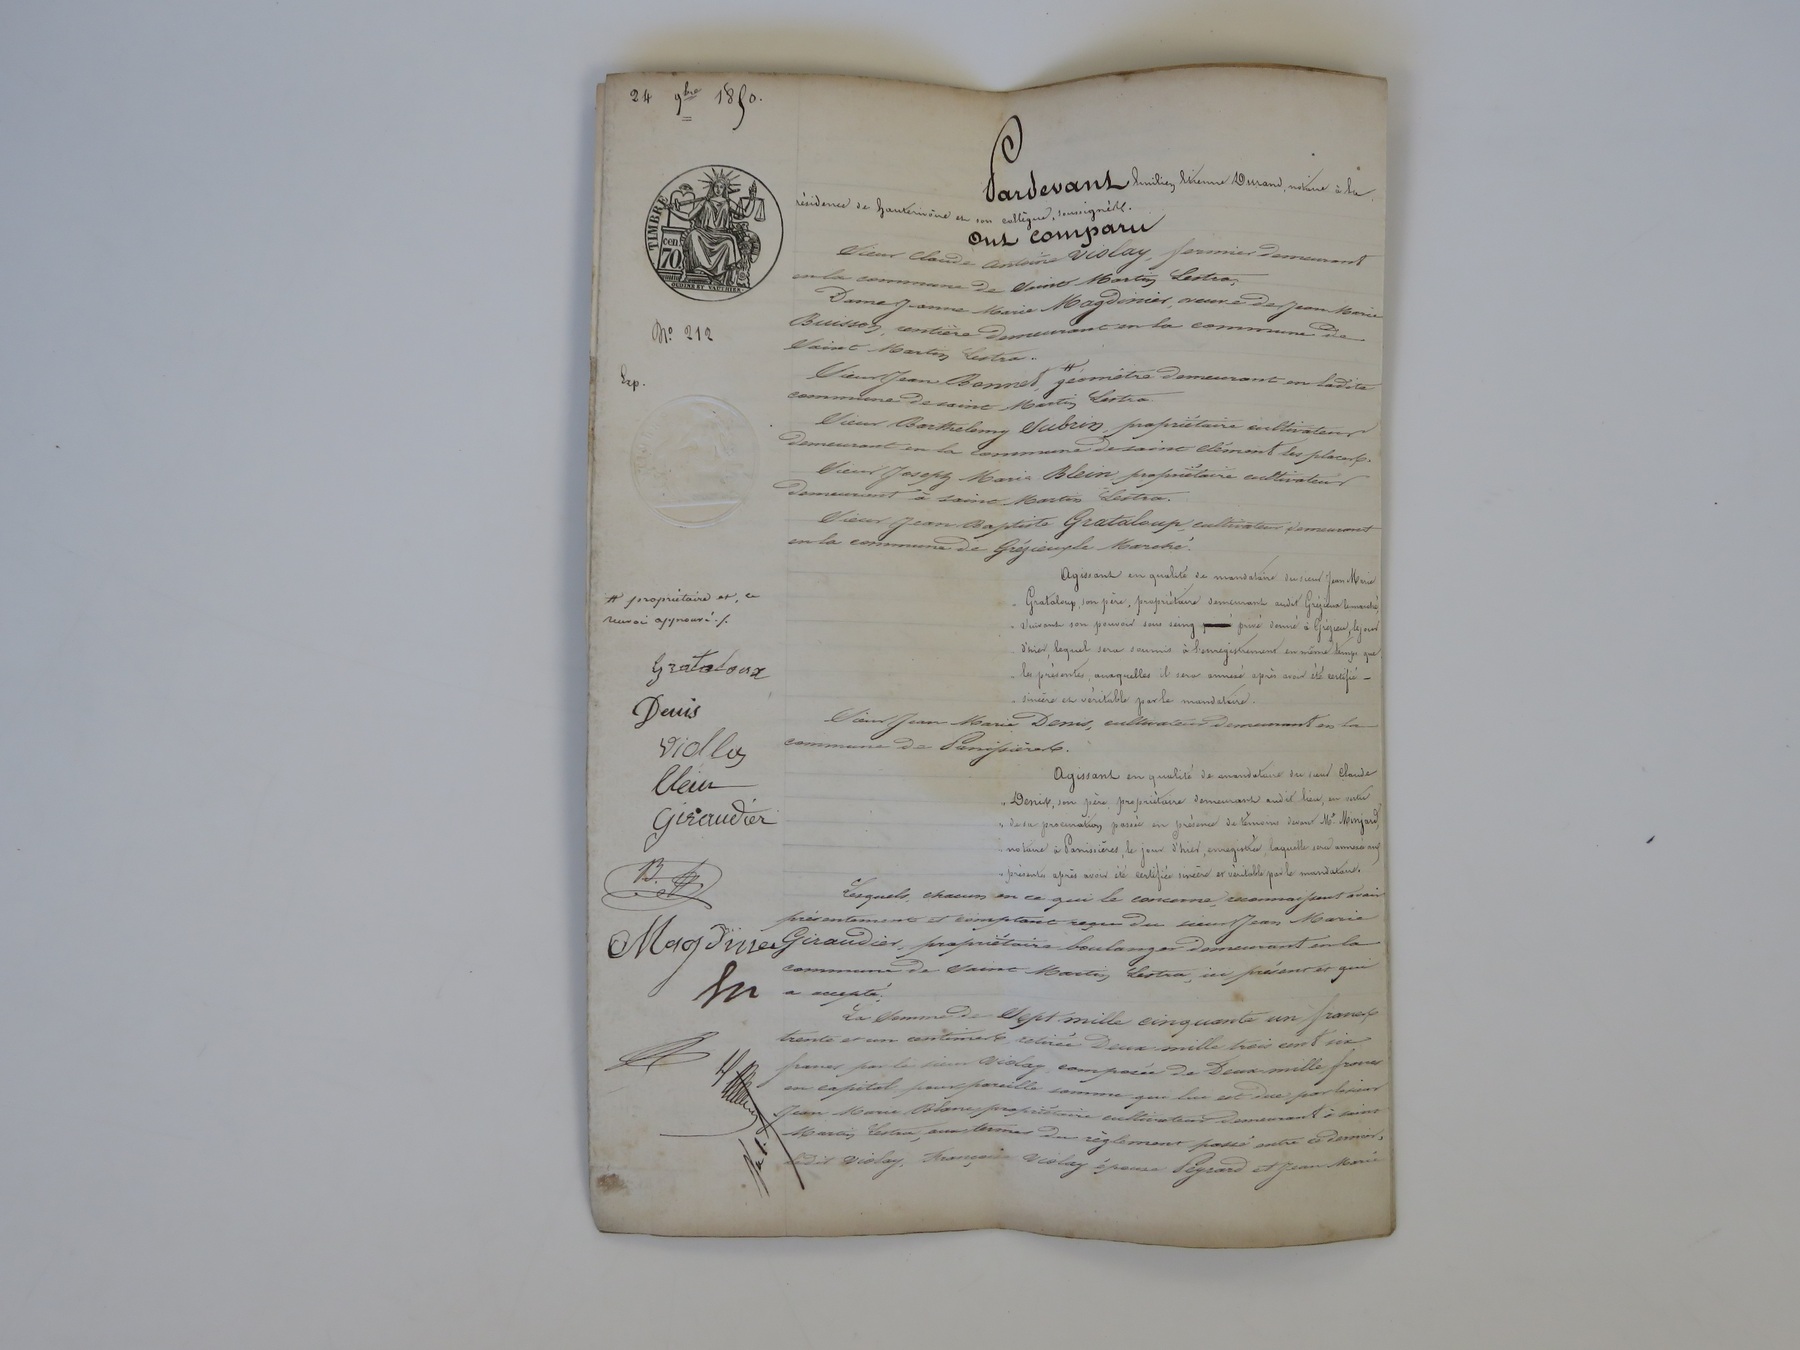 24 9bre 1850.
TIMBRE
cen
70
OUDINE ET VAUTHIER
No. 212
Exp.
Pardevant Emilien Etienne Durand, notaire à la
résidence de hauterivoire et son collègue, soussignés.
Ont comparu
Sieur Claude Antoine Violay, fermier demeurant
en la commune de Saint Martin Lestra,
Dame Jeanne Marie Magdinier, veuve de Jean Marie
Buisson, rentière demeurant en la commune de
Saint Martin Lestra.
Sieur Jean Bonnet, # géomètre demeurant en ladite
commune de saint Martin Lestra.
Sieur Barthelemy Subrin, propriétaire cultivateur
demeurant en la commune de saint Clément les places.
Sieur Joseph Marie Blein, propriétaire cultivateur
demeurant à saint Martin Lestra.
Sieur Jean Baptiste Grataloup, cultivateur demeurant
en la commune de Grézieu le Marché.
Agissant en qualité de mandataire du sieur Jean Marie
Grataloup, son père, propriétaire demeurant audit Grézieu le marché,
suivant son pouvoir sous seing privé donné à Grézieu, le jour
d'hier, lequel sera soumis à l'enregistrement en même temps que
les présentes, auxquelles il sera annexé après avoir été certifié
sincère et véritable par le mandataire.
Sieur Jean Marie Denis, cultivateur demeurant en la
commune de Panissières.
Agissant en qualité de mandataire du sieur Claude
Denis, son père, propriétaire demeurant audit lieu, en vertu
de sa procuration passée en présence de témoins devant Me
notaire à Panissières, le jour d'hier, enregistrée, laquelle sera annexée aux
présentes après avoir été certifiée sincère et véritable par le mandataire.
Lesquels, chacun en ce qui le concerne, reconnaissent avoir
présentement et comptant reçu du sieur Jean Marie
Giraudier, propriétaire boulanger demeurant en la
commune de Saint Martin Lestra, ici présent et qui
a accepté.
La Somme de Sept mille cinquante un francs
trente et un centimes, retirée Deux mille trois cent six
francs par le sieur Violay, composée de Deux mille francs
en capital, pour pareille somme qui lui est due par le sieur
Jean Marie Blanc, propriétaire cultivateur demeurant à saint
Martin Lestra, aux termes du règlement passé entre ce dernier,
ledit Violay, Françoise Violay épouse Peyrard et Jean Marie
# propriétaire et, ce
renvoi approuvé ./.
Grataloux
Denis
Viollay
blein
Giraudier
B.
Magdinier